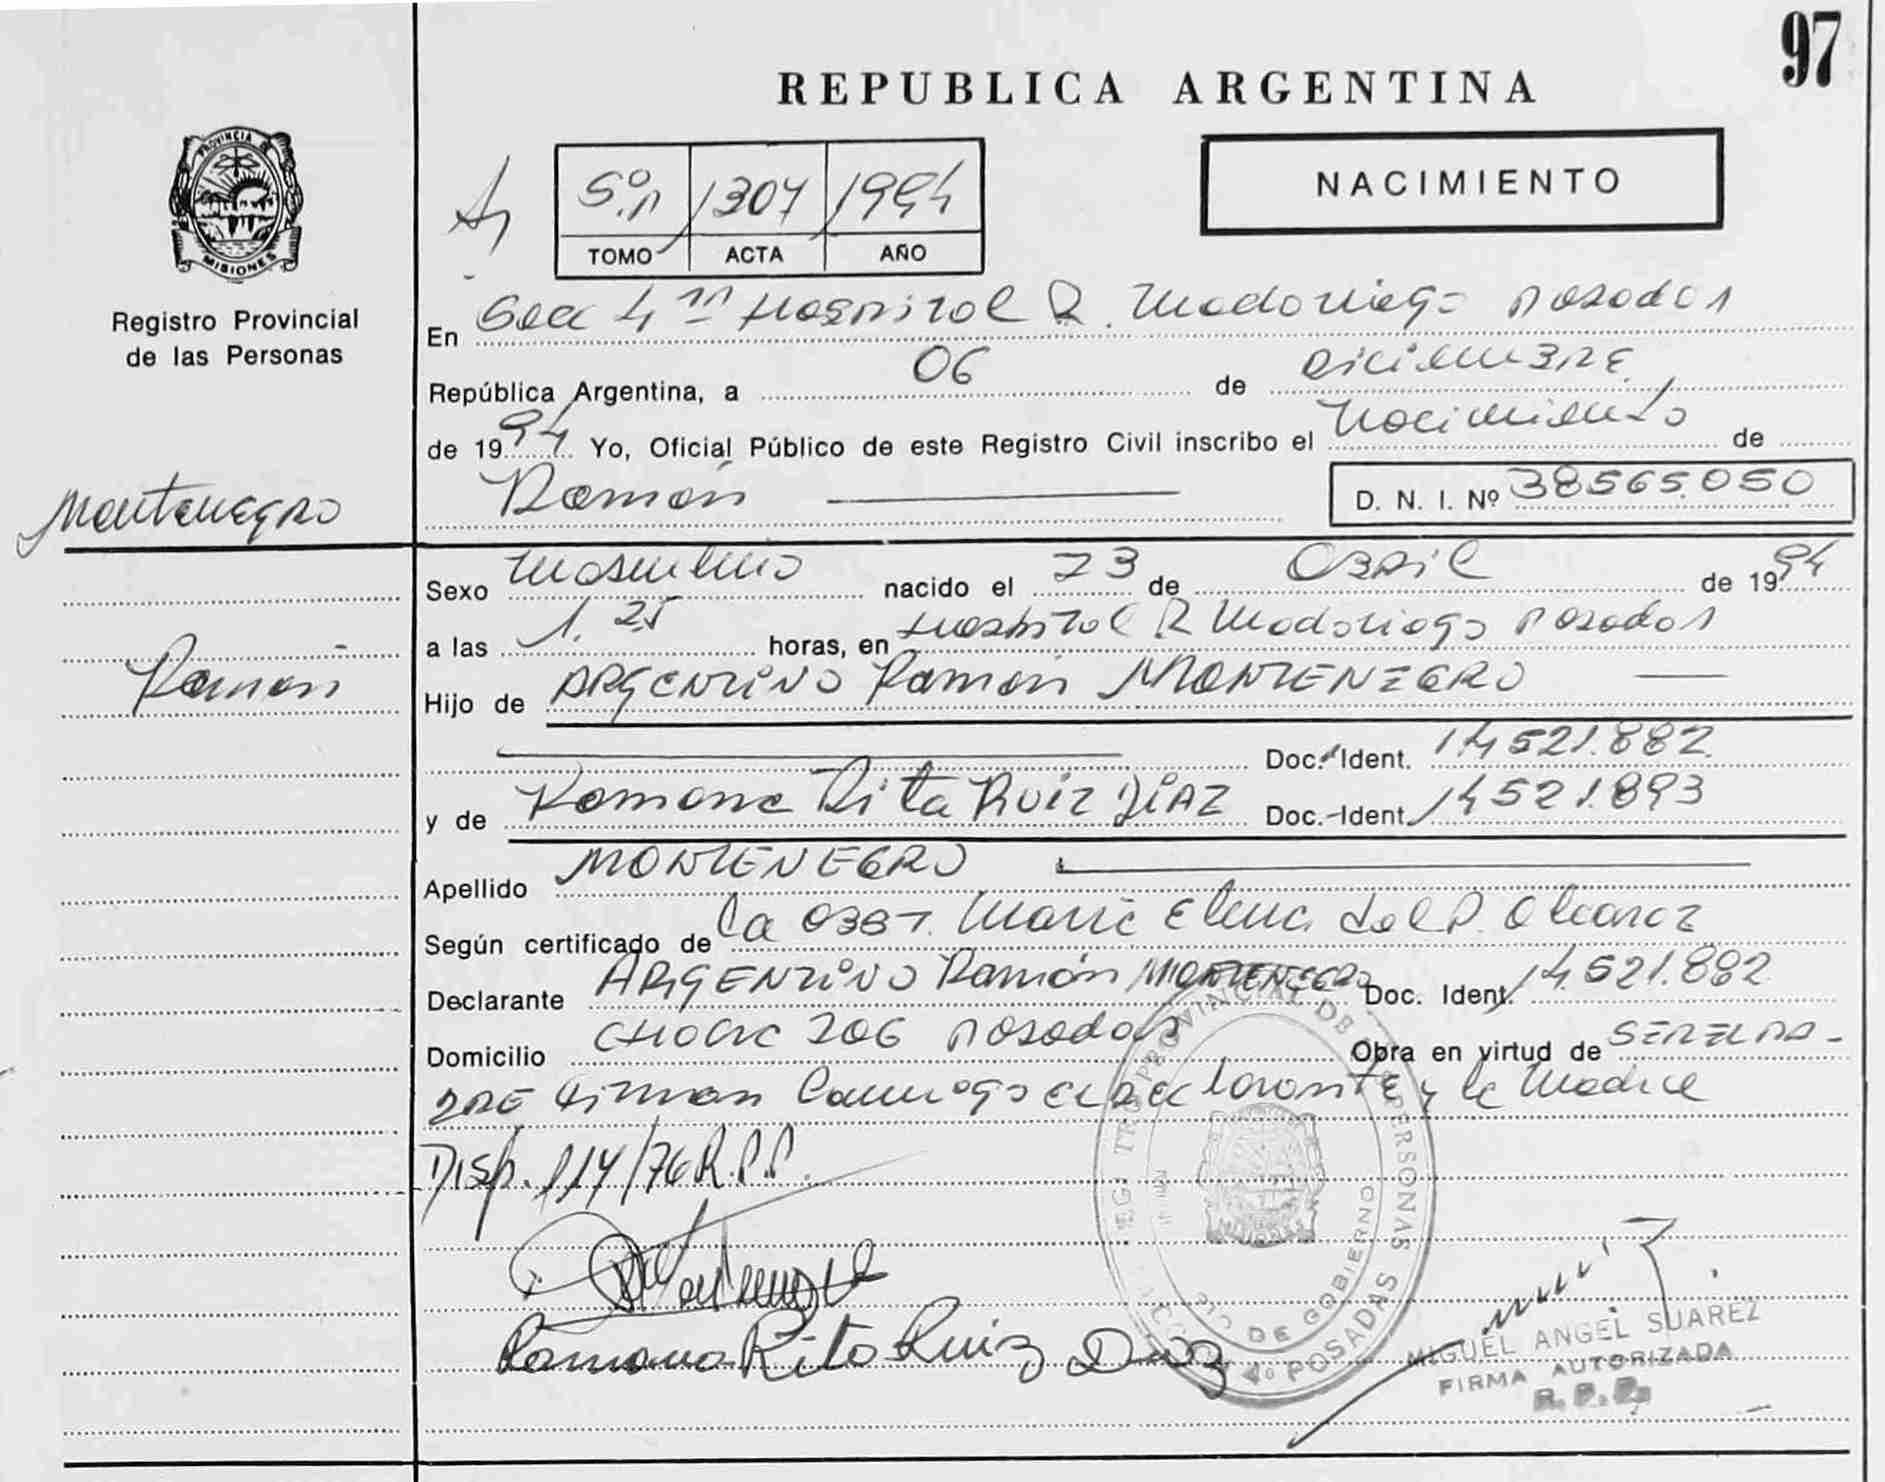 97
REPUBLICA ARGENTINA
NACIMIENTO
5º 1307 1994
TOMO ACTA AÑO
PROVINCIA DE MISIONES
Registro Provincial
de las Personas
En Secc 4ta Hospital R. Madariaga Posadas
República Argentina, a 06 de Diciembre
de 1994 Yo, Oficial Público de este Registro Civil inscribo el Nacimiento de
Ramón
D. N. I. Nº 38565.050
Montenegro
Ramón
Sexo Masculino nacido el 23 de Abril de 1994
a las 1.25 horas, en Hospital R Madariaga Posadas
Hijo de ARGENTINO Ramón MONTENEGRO
Doc. Ident. 14521.882
y de Ramona Rita Ruiz DíAZ Doc.-Ident. 14521.893
Apellido MONTENEGRO
Según certificado de la OBST. Maria Elena del P. Alvarez
Declarante ARGENTINO Ramón MONTENEGRO Doc. Ident. 14521.882
Domicilio CHACO 206 Posadas Obra en virtud de SER EL PA-
DRE Firman Conmigo el declarante y la Madre
Disp. 114/76 R.P.P.
Ramona Rita Ruiz Diaz
PROVINCIAL DE PERSONAS
DE GOBIERNO
4º POSADAS
MIGUEL ANGEL SUAREZ
FIRMA AUTORIZADA
R.P.P.